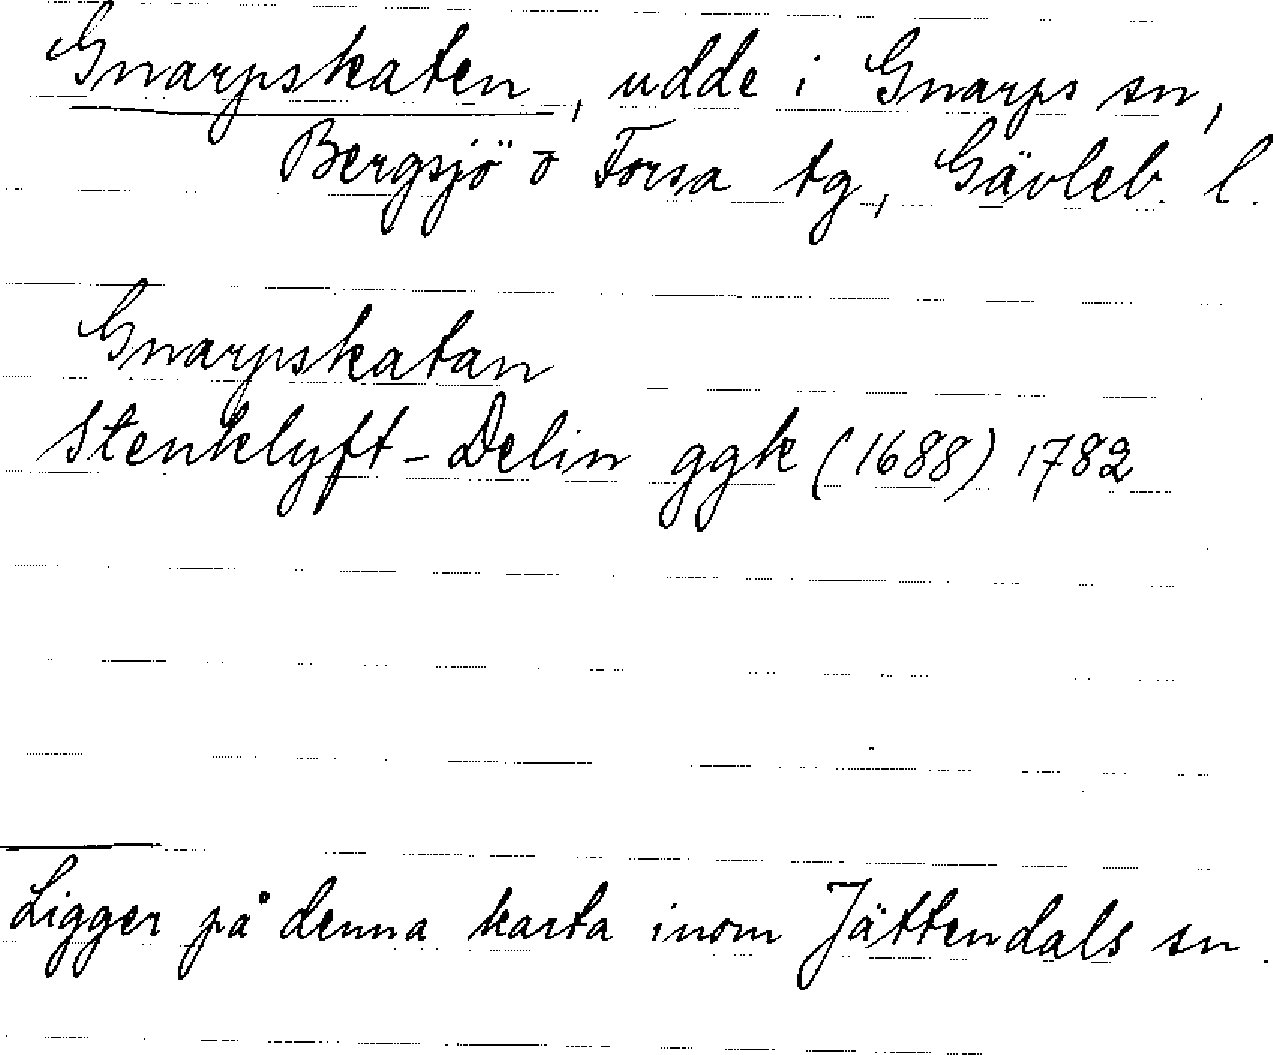 Gnarpskaten, udde i Gnarps sn,
Bergsjö o Forsa tg, Gävleb. l.
Gnarpskatan
Stenklyft-Delin ggk (1688) 1782
Ligger på denna karta inom Jättendals sn.